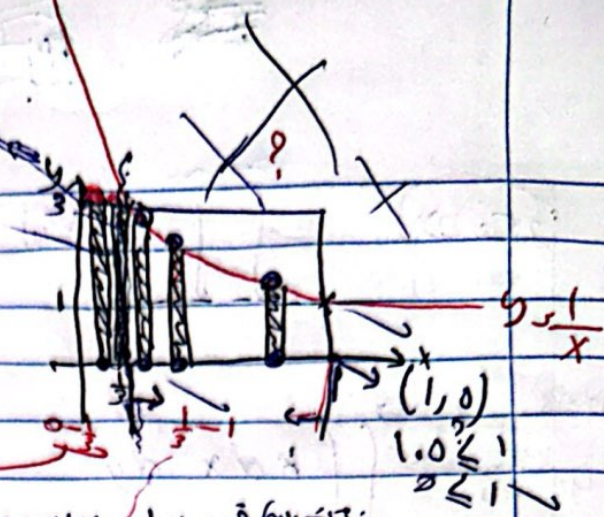 ?
y
3
1
y = 1/x
x
1/3
0-1/3
1/3-1
1
(1,0)
1.0 ≤ 1
0 ≤ 1